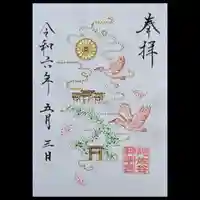 奉拝
令和六年五月三日